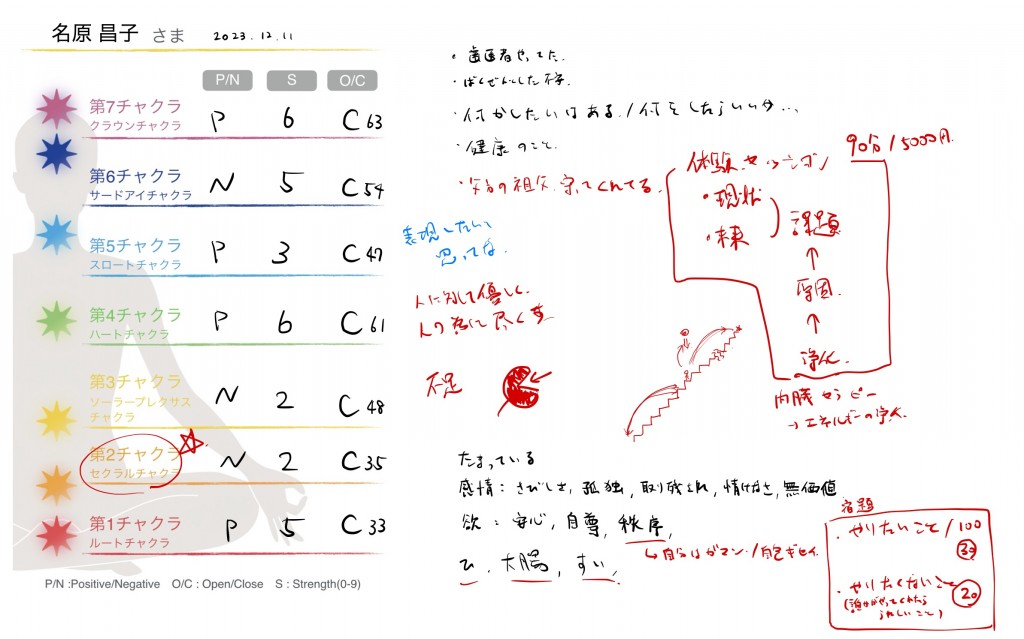 名原 昌子 さま 2023.12.11
P/N S O/C
第7チャクラ
クラウンチャクラ
P 6 C63
第6チャクラ
サードアイチャクラ
N 5 C54
第5チャクラ
スロートチャクラ
P 3 C47
第4チャクラ
ハートチャクラ
P 6 C61
第3チャクラ
ソーラープレクサス
チャクラ
N 2 C48
第2チャクラ
セクラルチャクラ
N 2 C35
第1チャクラ
ルートチャクラ
P 5 C33
P/N :Positive/Negative O/C : Open/Close S : Strength(0-9)
・歯医者やってた.
・ばくぜんとした不安
・何かしたいはある./何をしたらいいか...
・健康のこと.
・父方の祖父.守ってくれてる.
表現したいと
思ってな.
人に対して優しく.
人の為に尽くす
不足
90分/5000円.
体験セッション
・現状
・未来
課題
↑
原因.
↑
浄化.
内臓セラピー
→エネルギーの浄化.
たまっている
感情:さびしさ,孤独,取り残され,情けなさ,無価値
欲:安心,自尊,秩序,
↳自分はガマン/自己ギセイ.
ひ、大腸,すい,
宿題
・やりたいこと/100
30
・やりたくないこと
20
(誰かがやってくれたら
うれしいこと)